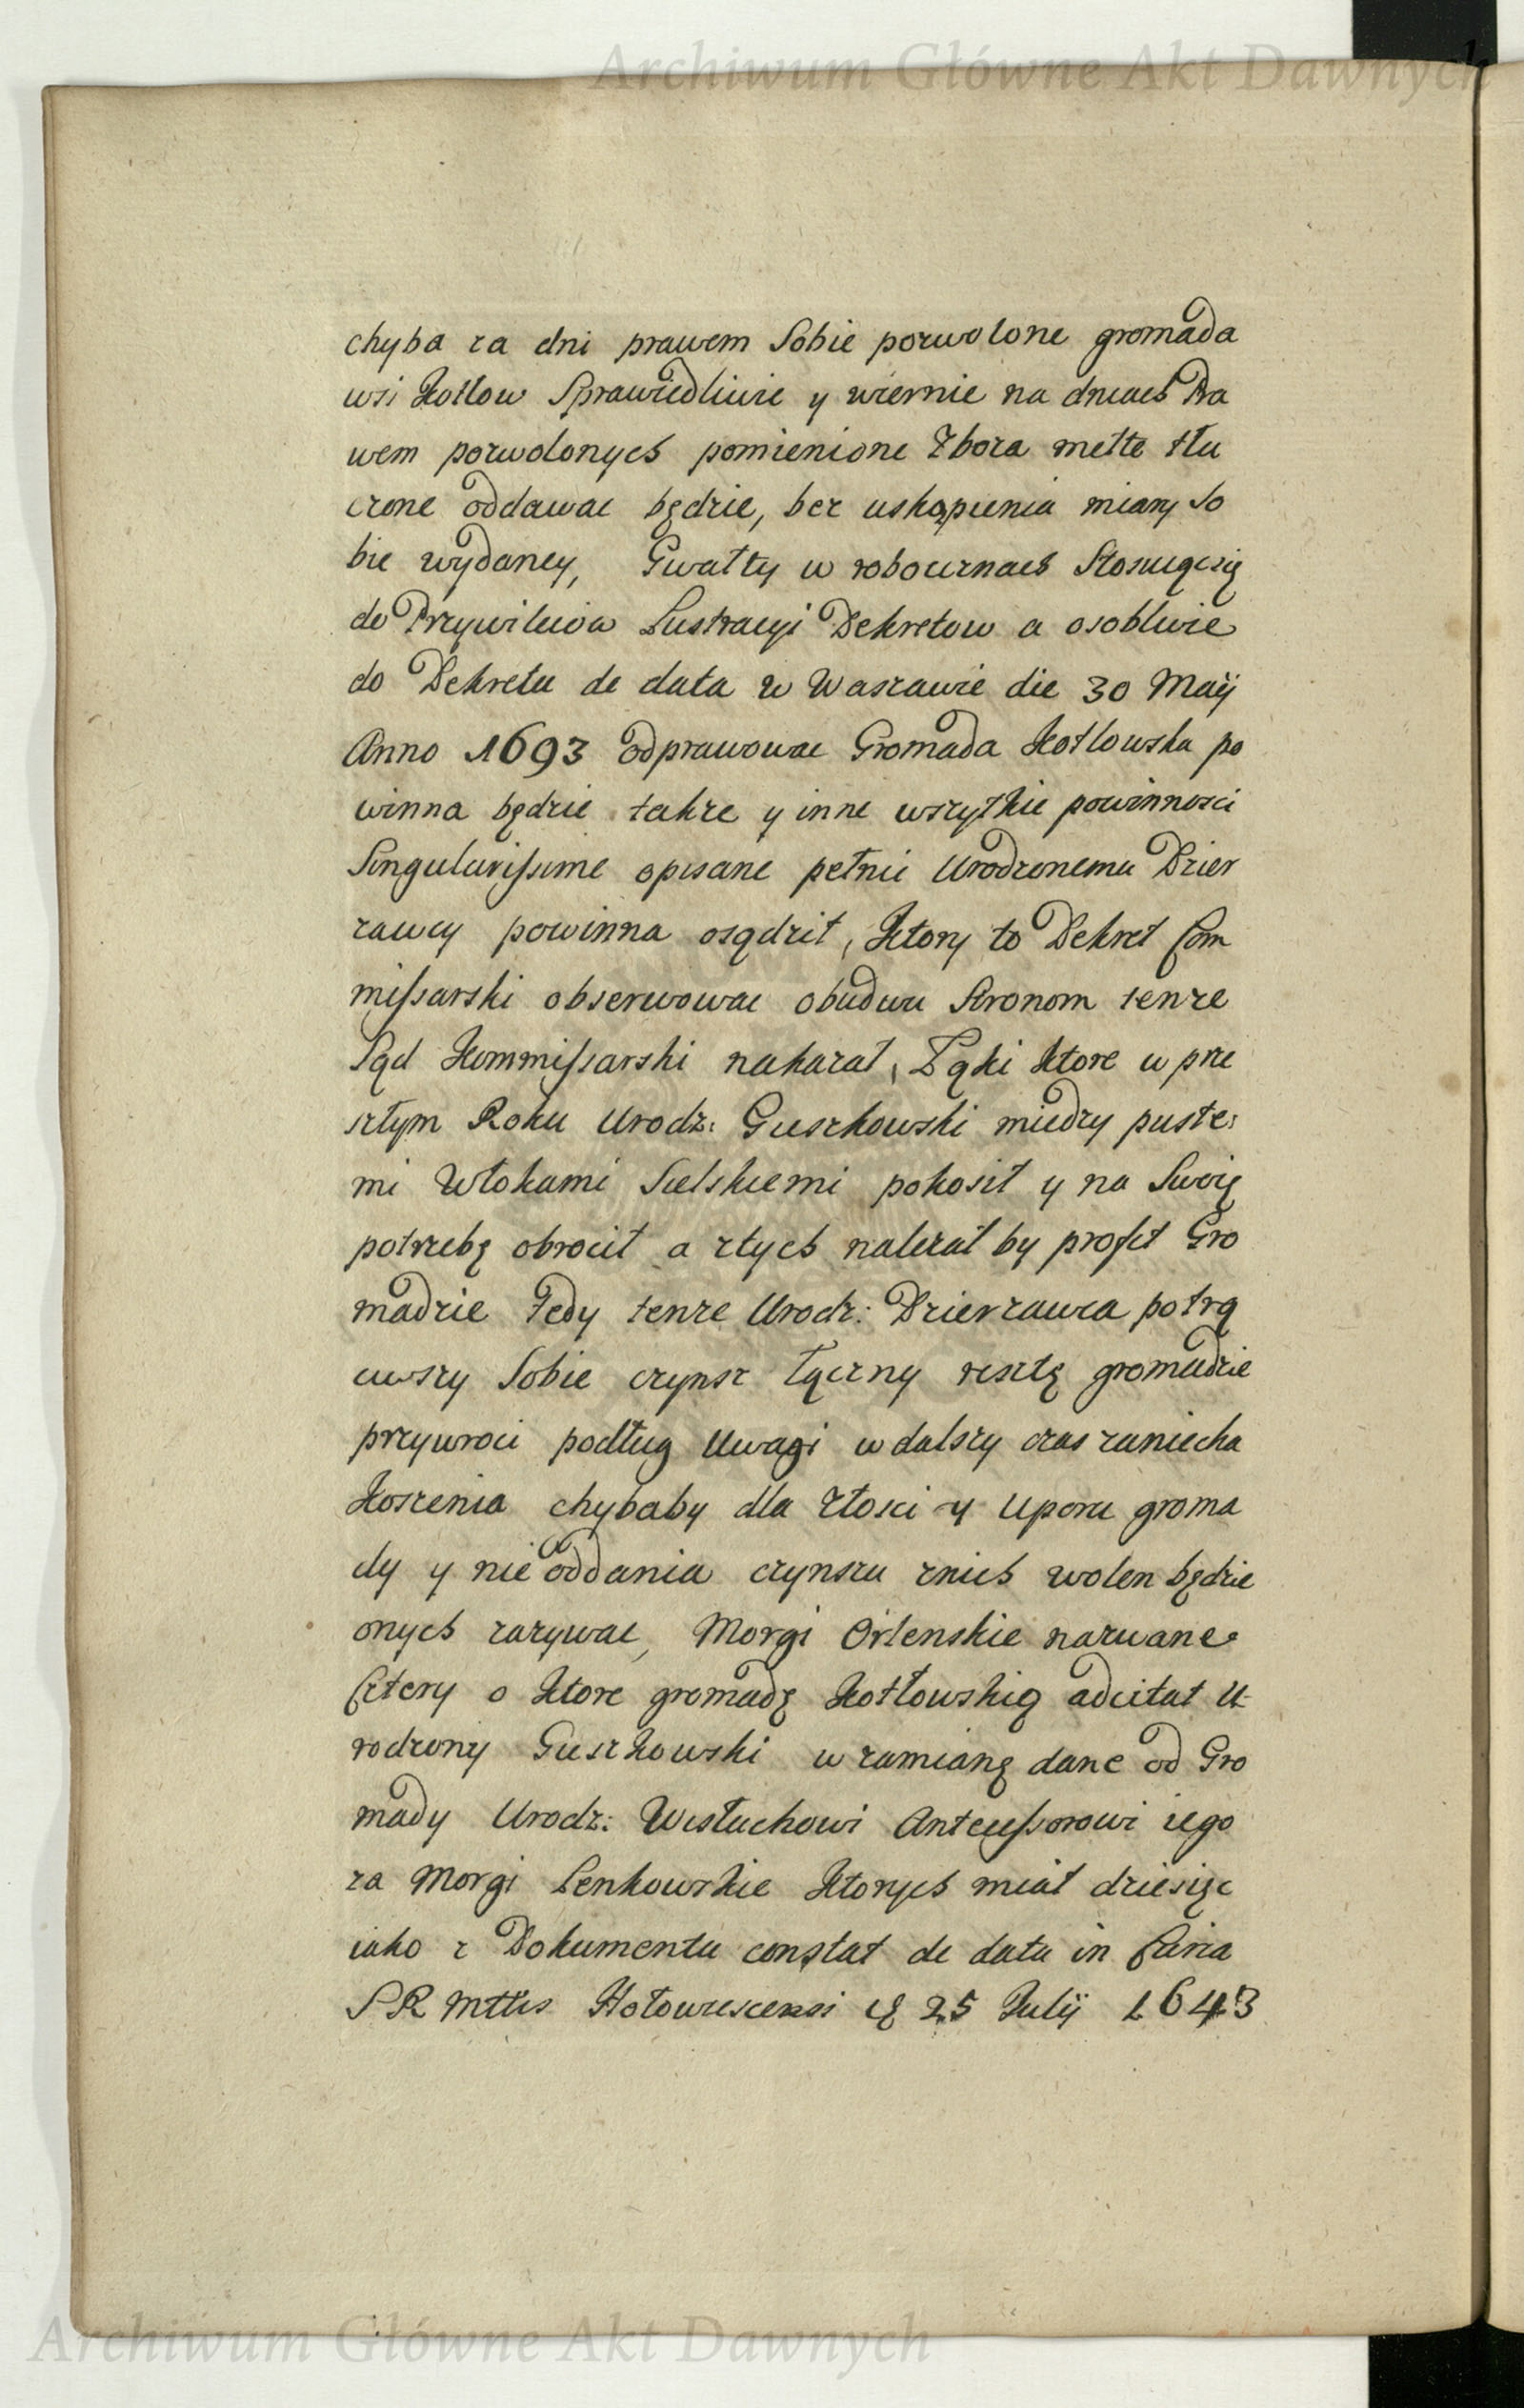 Archiwum Główne Akt Dawnych
chyba za dni prawem Sobie pozwolone gromada
wsi Kotłow Sprawiedliwie y wiernie na dniach Pra
wem pozwolonych pomienione Zboza mełte tłu
czone oddawac będzie, bez uskąpienia miary So
bie wydaney, Gwałty w roboczznach Stosuiąc się
do Przywileiow Lustracyi Dekretow a osobliwie
do Dekretu de data w Waszawie die 30 Maij
Anno 1693 odprawowac Gromada Kotłowska po
winna będzie takze y inne wszytkie powinnosci
Singularissime opisane pełnic Urodzonemu Dzier
zawcy powinna osądził, Ktory to Dekret Com
missarski obserwowac obudwu Stronom tenze
Sąd Kommissarski nakazał, Łąki Ktore w prze
szłym Roku Urodz: Guszkowski miedzy puste:
mi Włokami Sielskiemi pokosił y na Swoię
potrzebę obrocił a ztych nalezał by profit Gro
madzie Tedy tenze Urodz: Dzierzawca potrą
ciwszy Sobie czynsz Łączny resztę gromadzie
przywroci podług Uwagi w dalszy czas zaniecha
Koszenia chybaby dla Złosci y Uporu groma
dy y nie oddania czynszu znich wolen będzie
onych zazywac, Morgi Orlenskie nazwane
Cztery o Ktore gromadę Kotłowskią adcitat U-
rodzony Guszkowski w zamianę dane od Gro
mady Urodz: Wisłuchowi Antecessorowi iego
za Morgi Lenkowskie Ktorych miał dziesięc
iako z Dokumentu constat de data in Curia
S R Mttis Hołowiescensi 25 Julij 1643
Archiwum Główne Akt Dawnych